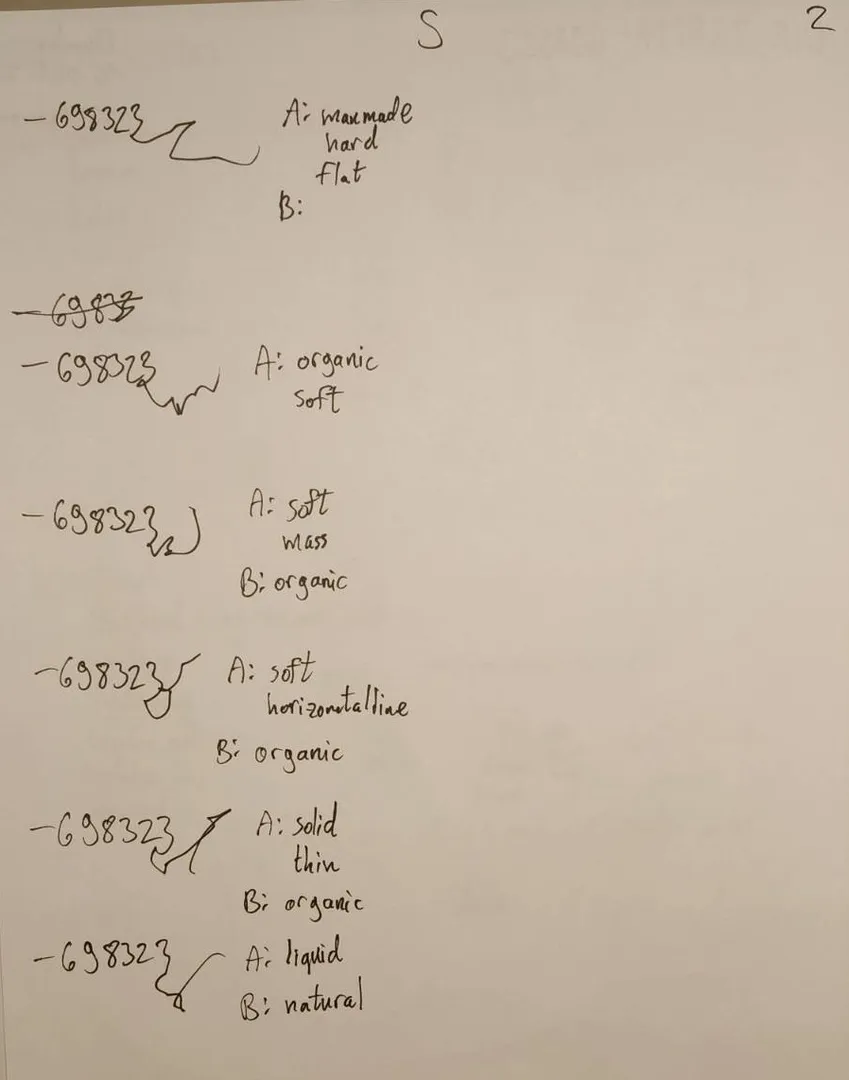 S 2
-698323 A: manmade
hard
flat
B:
-69833
-698323 A: organic
soft
-698323 A: soft
mass
B: organic
-698323 A: soft
horizontalline
B: organic
-698323 A: solid
thin
B: organic
-698323 A: liquid
B: natural